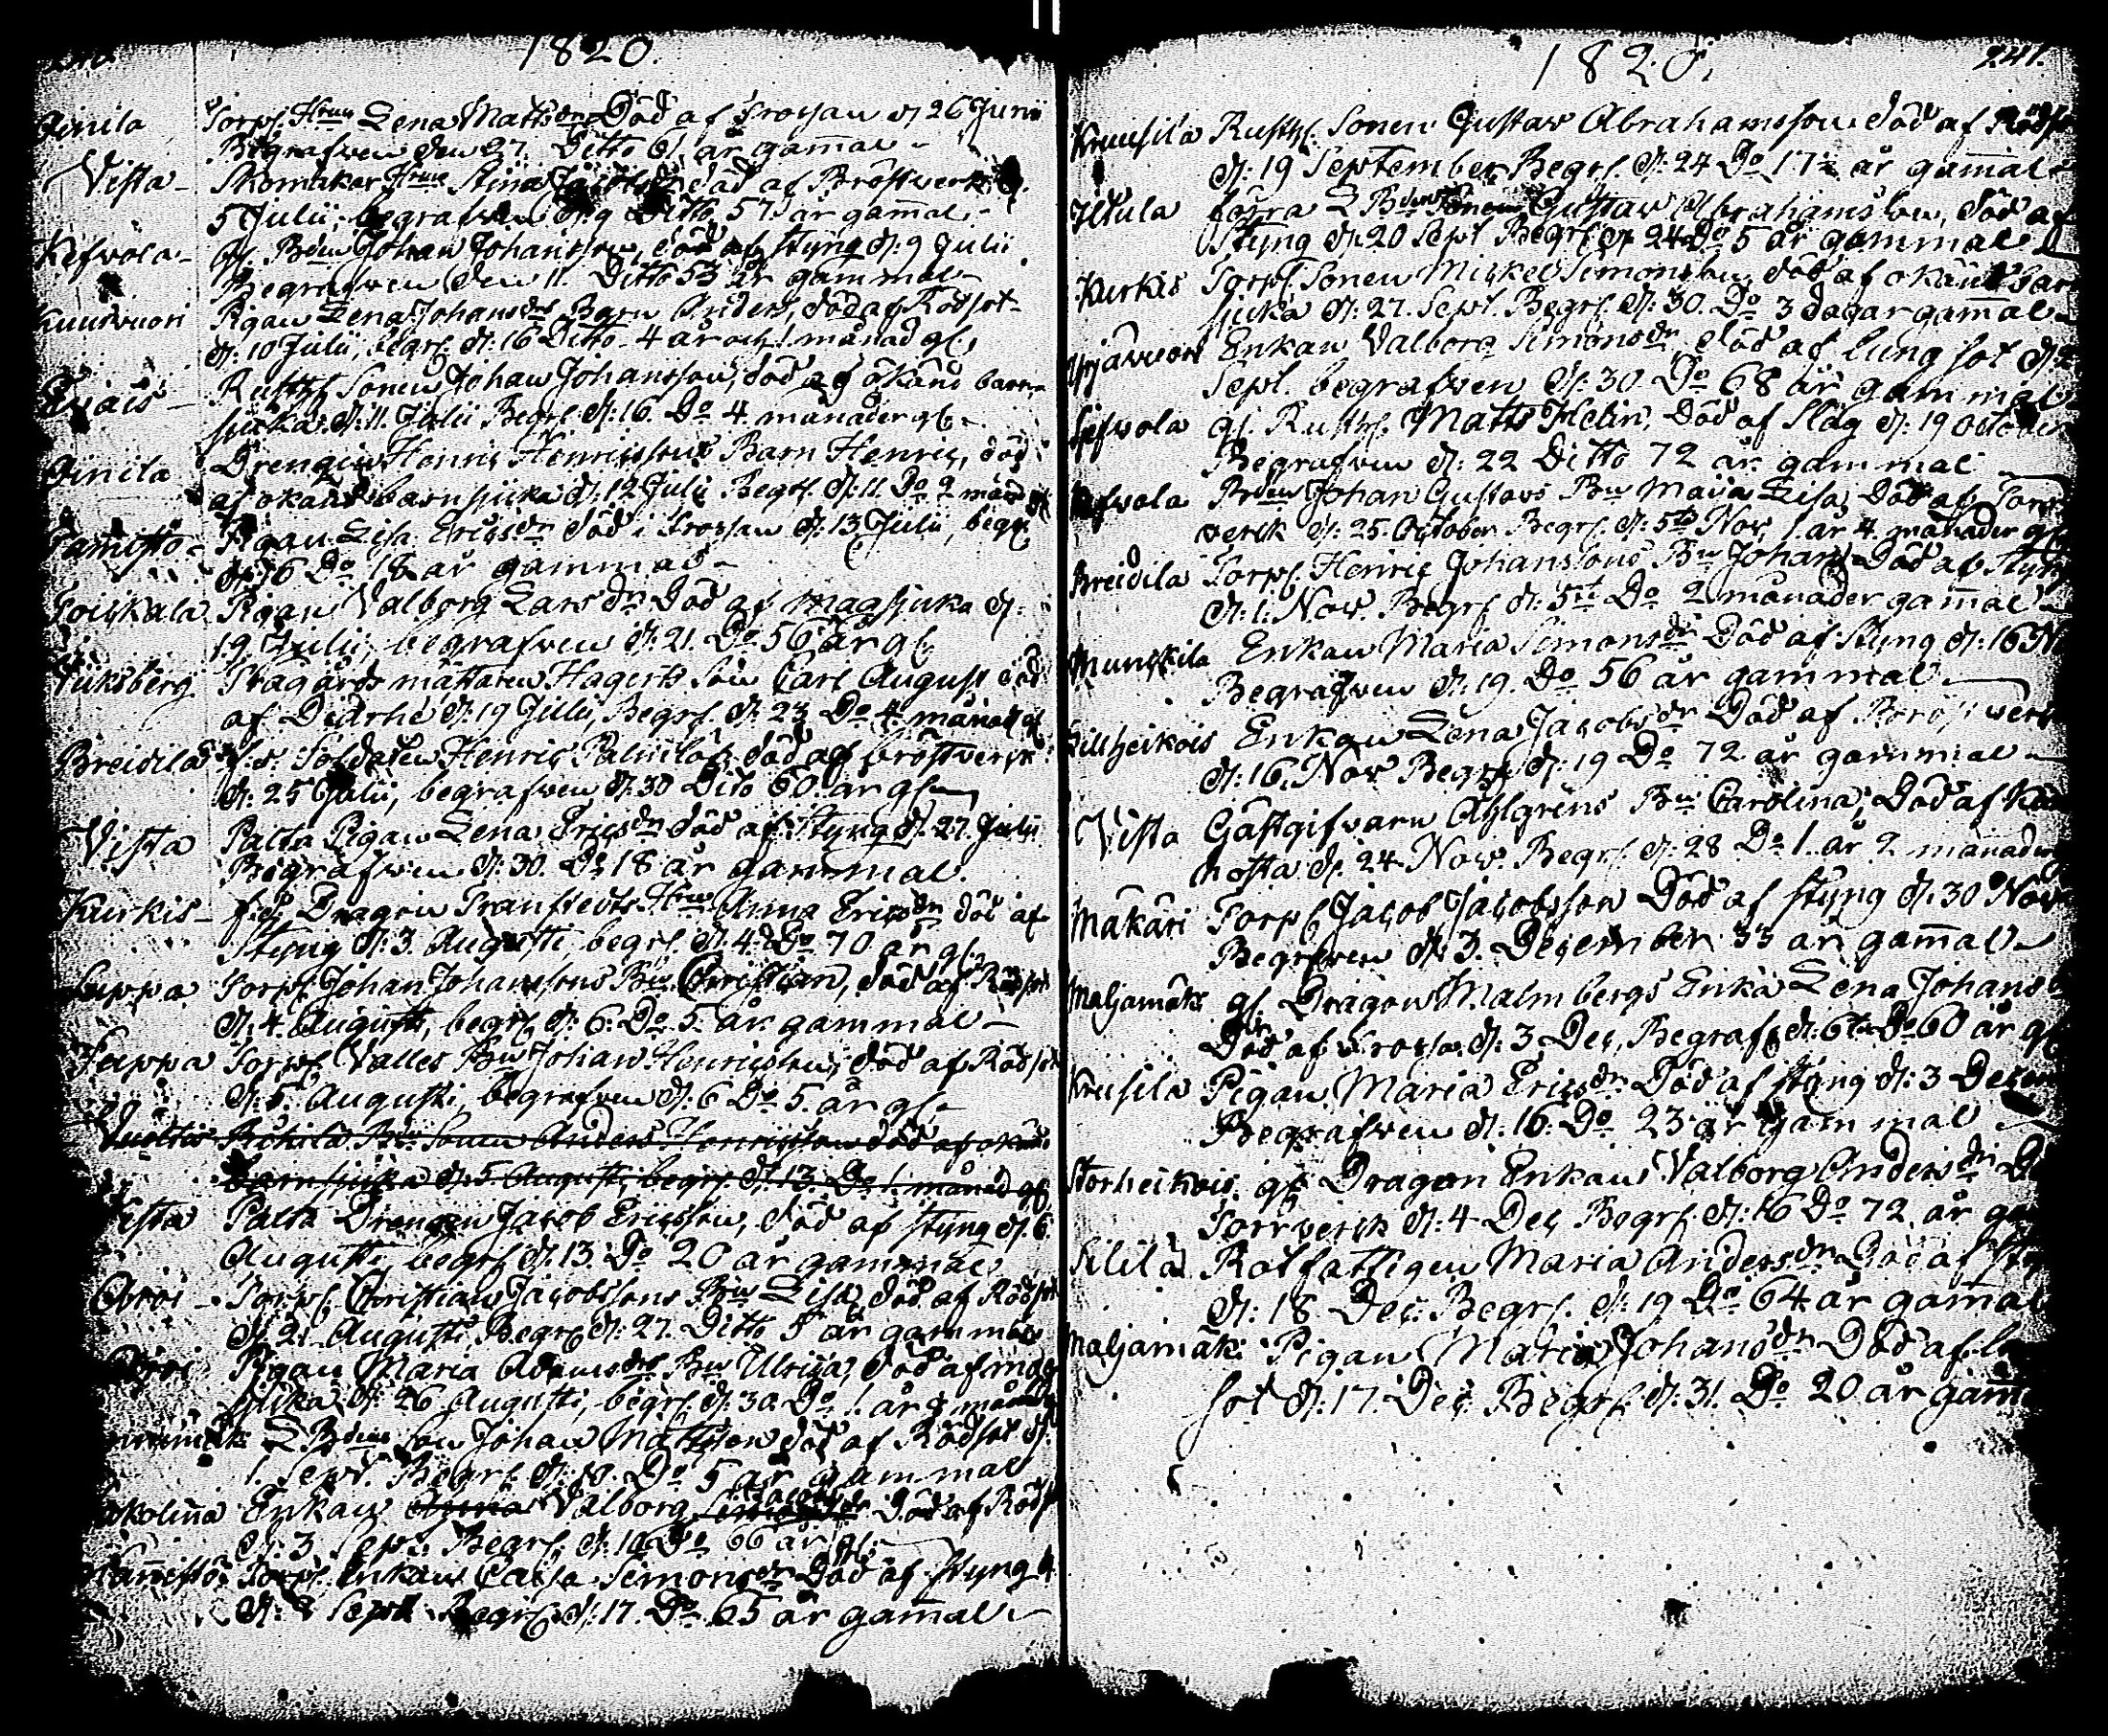 1820.
Ginila Torp. Hrun Lena Mattsdr Död af Frossan d. 26 Junii
Begrafven den 27. Ditto 61 år gam̄al
Vista Skomakar Hrun Stina död af Bröstverk d.
5 Julii, begrafven d. 9 Ditto 57 år gam̄al
Kefvola gl. Bden Johan Johansson, död af styng d. 9 Julii
Begrafven den 11. Ditto 53 år gammal
Kuusvuori Pigan Lena Johansdrs Barn Anders, död af Rödsot
d: 10 Julii, begrf. d: 16 Ditto 4 år och 1 månad gl.
Rusth. Sonen Johan Johansson, död af okänd barn
sjuka d: 11. Julii Begr. d: 16. Do 4 månader gl.
Ginila Drengen Henric Henricssons Barn Henric, död
af okänd barnsjuka d: 12 Julii Begrf. d: 11. Do 2 mån gl
Pigan Lisa Ericsdr död i Frossan d: 13 Julii, begr.
d: 16 Do 18 år gammal
Toickala Pigan Valborg Larsdr Död af magsjuka d:
19 Julii, begrafven d: 21. Do 56 år gl.
Viiksberg Hagerts Son Carl August död
af Diarhé d: 19 Julii, Begrf. d. 23 Do 4 månad gl
Breidila f.d. Soldaten Henric Palmlöf död af bröstverk
d: 25 Julii, begrafven d: 30 Dito 60 år gl.
Vista Palta Pigan Lena Ericsdr död af Styng d. 27. Julii
Begrafven d: 30. Do 18 år gammal.
Kurkis f.d. Dragon Transtedts Hru Anna Ericsdr död af
Styng d: 3. Augusti, begrf. d. 4. Do 70 år gl.
Torp. Johan Johanssons Bn Christian, död af Rödsot
d: 4. Augusti, begrf. d: 6. Do 5. år gammal
Torp. Valles Bn Johan Henricsson, död af Rödsot
d: 5. Augusti, begrafven d: 6 Do 5. år gl.
Sonen Anders Henricsson död af okänd
barnsjuka d: 5 Augusti, begrf. d: 13 Do 1. månad gl.
Vista Palta Drengen Jacob Ericsson, död af styng d. 6.
Augusti, begrf. d: 13. Do 20 år gammal
Torp. Christian Jacobssons Bn Lisa död af Rödsot
d: 21 Augusti Begrf. d: 27. Ditto 5 år gammal
Pigan Maria Adamsdrs Bn Ulrica, död af mag
sjuka d: 26 Augusti, begrf. d: 30 Do 1. år
Son Johan Mattsson död af Rödsot d:
1. Sept. Begrf. d: 10. Do 5 år gammal
Enkan Valborg Död af Rödsot
d: 3 Sept. Begrf. d: 10 Do 66 år gl.
Torp. Enkan Caisa Simonsdr Död af Styng
Begrf. d: 17. Do 65 år gam̄al
1820.
241.
Kruusila Rusth. Sonen Gustav Abrahamsson död af Rödsot
d: 19 September Begrf. d: 24 Do 17 år gam̄al
förra Gustav Abrahamsson, död af
Styng d: 20 Sept Begrf. d: 24 Do 5 år gammal
Kurkis Torp. Sonen Mickel Simonsson, död af okänd Barn
sjuka d: 27. Sept. Begrf. d: 30. Do 3 dagar gam̄al
Enkan Valborg Simonsdr död af lungsot d:
Sept. begrafven d: 30. Do 68 år gammal
gl. Rusth. Matts Helin, Död af Slag d: 19 October
Begrafven d: 22 Ditto 72 år gammal
Kefvola Bden Johan Gustavs Bn Maija Lisa Död af Torr
verck d: 25. October Begrf. d: 5te Nov, 1. år 4. månader gl
Breidila Torp. Henric Johanssons Bn Johan Död af Styng
d: 1. Nov. Begrf d: 5te Do 2 månader gam̄al
Munckila Enkan Maria Simonsdr Död af Styng d: 16 Nov
Begrafven d: 19. Do 56 år gammal
Lillheikois Enkan Lena Jacobsdr Död af Bröstverk
d: 16. Nov Begrf d: 19 Do 72 år gammal
Vista Gästgifvarn Ahlgrens Bn Carolina, Död af Kik
hosta d. 24 Nov. Begrf. d: 28 Do 1. år 2 månader
Mäkäri Torp. Jacob Jacobsson Död af styng d: 30 Nov
Begrafven d: 3. December 33 år gam̄al
Maljamäki gl. Dragon Malmbergs Enka Lena Johans
Dr Död af Frossa d: 3 Dec, Begraf. d: 6te Do 60 år gl
Krusila Pigan Maria Ericsdr Död af styng d: 3 Decem
Begrafven d: 16. Do 23 år gammal
Storheikois gl. Dragon Enkan Valborg Andersdr
Torrverck d: 4 Dec Begrf. d: 16 Do 72 år
Kilila Rotfattigen Maria Andersdr Död af sty
d: 18 Dec. Begrf. d: 19 Do 64 år gam̄al
Maljamäki Pigan Maria Johansdr Död af
sot d: 17. Dec Begrf. d: 31. Do 20 år gam̄